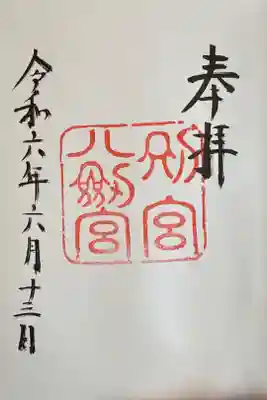 奉拝
別宮
八劔宮
令和六年六月十三日